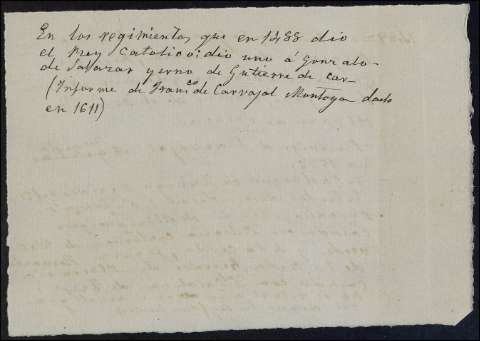 En los regimientos que en 1488 dio
el Rey Catolico: dio uno á Gonzalo-
de Salazar yerno de Gutierre de Car-
(Informe de Fran.co de Carvajal Montoya dado
en 1611)